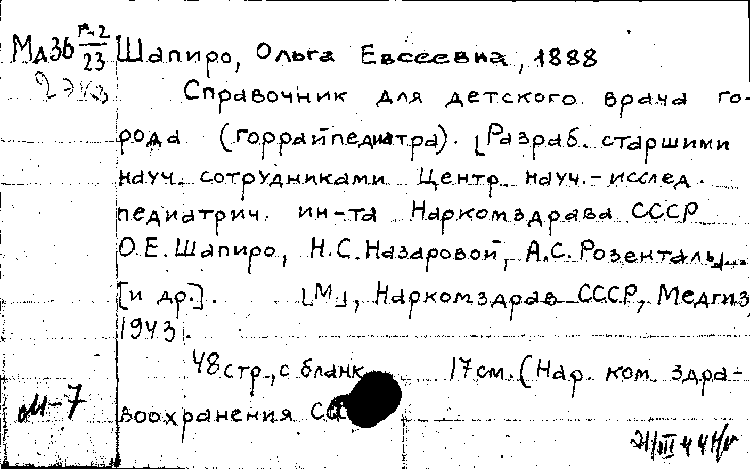 Мд36 Р-2/23 Шапиро, Ольга Евсеевна, 1888
2 экз
Справочник для детского врача го-
рода (горрайпедиатра). [Разраб. старшими
науч. сотрудниками Центр. науч.-исслед.
педиатрич. ин-та Наркомздрава СССР
О.Е. Шапиро, Н.С. Назаровой, А.С. Розенталь...
[и др.]. [М], Наркомздрав СССР, Медгиз,
1943.
48 стр., с бланк 17 см. (Нар. ком. здра-
М-7 воохранения СС